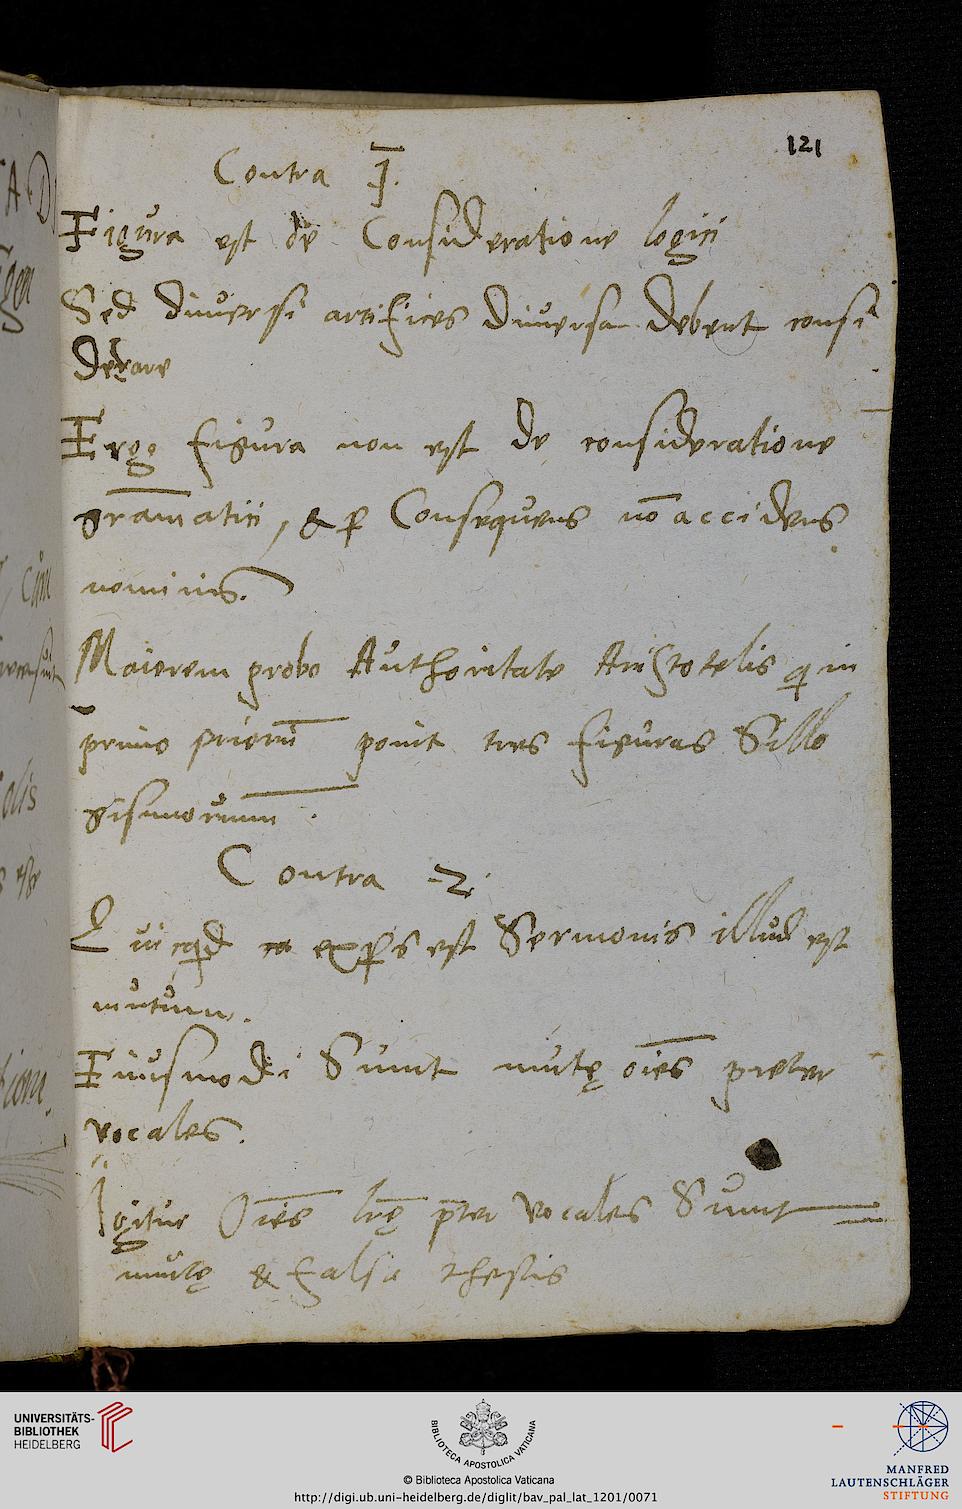 121
Contra 1.
Figura est de Consideratione logici
Sed diuersi artifices diuersa debent consi
derare
Ergo figura non est de consideratione
gram̄atici, & ꝑ Consequens nō accidens
nominis.
Maiorem probo Authoritate Aristotelis q̄ in
primo priorū ponit tres figuras Sillo
gismorum.
Contra 2.
Quicqd expers est Sermonis illud est
mutum.
Eiusmodi Sunt mutę oīes preter
vocales.
Igitur Oīes lr̄ę p̄ter vocales Sunt
mutę & falsa thesis
UNIVERSITÄTS-
BIBLIOTHEK
HEIDELBERG
BIBLIOTECA APOSTOLICA VATICANA
© Biblioteca Apostolica Vaticana
http://digi.ub.uni-heidelberg.de/diglit/bav_pal_lat_1201/0071
MANFRED
LAUTENSCHLÄGER
STIFTUNG